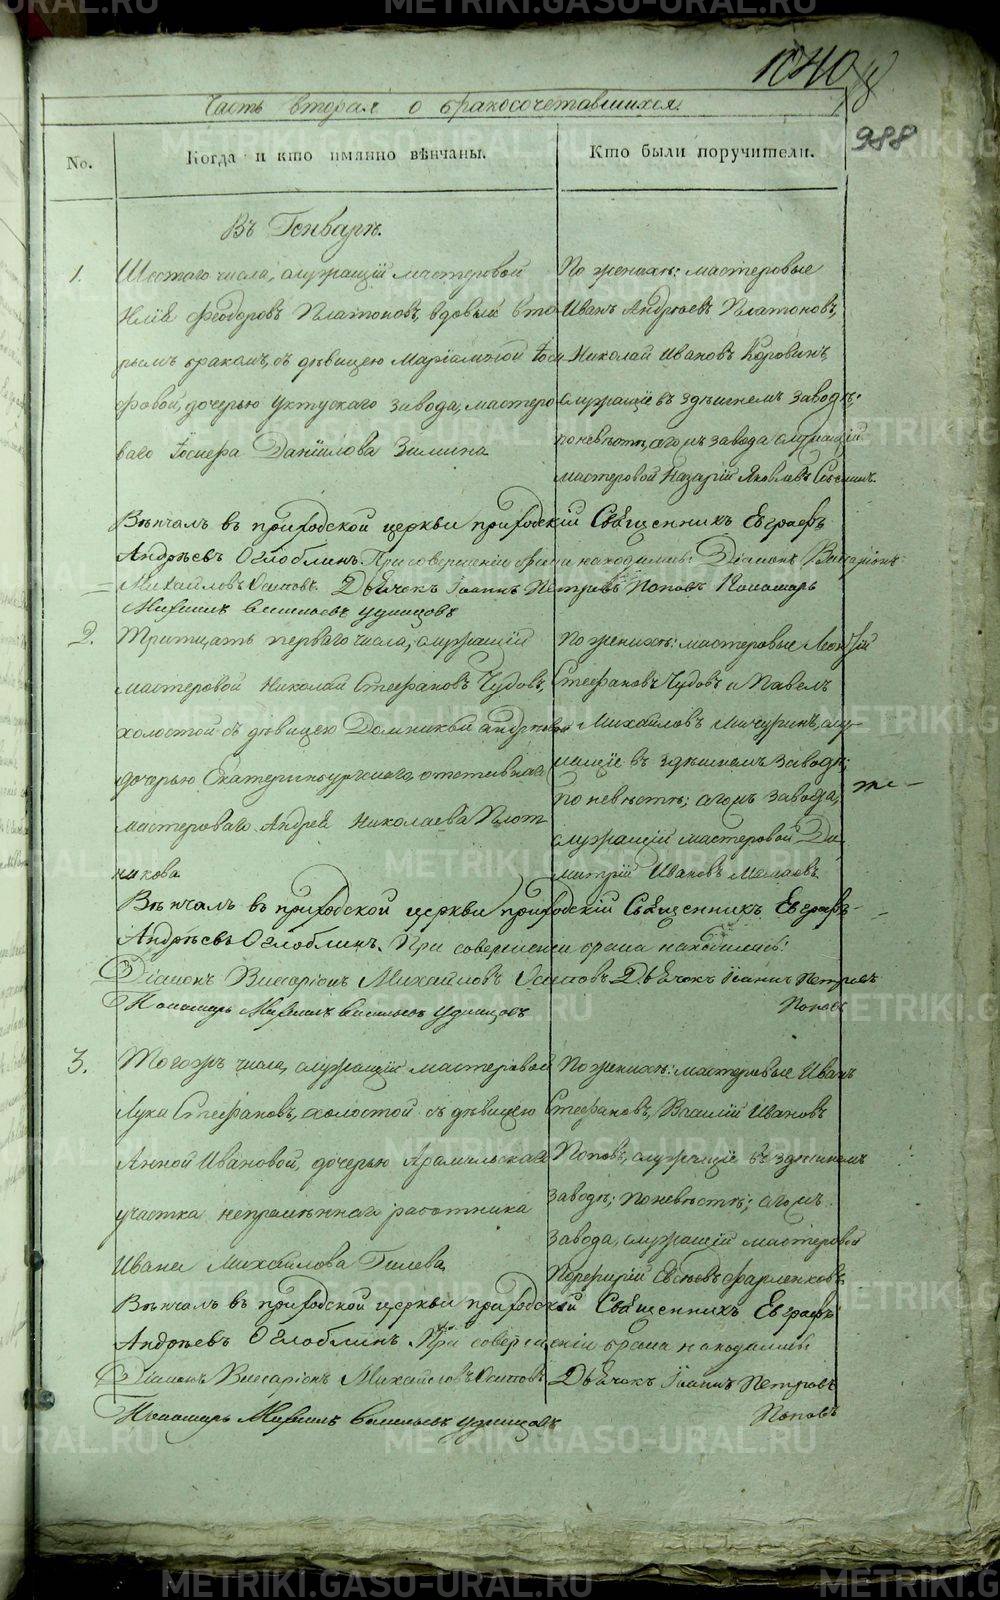 1040
988
Часть вторая о бракосочетавшихся
No.
Когда и кто имянно вѣнчаны.
Кто были поручители.
Въ Генварѣ.
1.
Шестаго числа, служащій мастеровой
Илія Феодоровъ Платоновъ, вдовый вто
рымъ бракомъ, съ дѣвицею Маріамной Іоси
фовой, дочерью Уктускаго завода, мастеро
ваго Іосифа Даніилова Зимина
По женихѣ: мастеровые
Иванъ Андреевъ Платоновъ,
Николай Ивановъ Коровинъ
служащіе въ здѣшнемъ заводѣ;
по невѣстѣ, сегожъ завода служащій
мастеровой Назарій Яковлевъ
Вѣнчалъ въ приходской церкви приходскій Священникъ Евграфъ
Андрѣевъ Оглоблинъ. При совершеніи брака находились: Діаконъ Виссаріонъ
Михайловъ Осиповъ. Дьячокъ Іоаннъ Петровъ Поповъ Пономарь
Михаилъ Васильевъ Удинцовъ
2.
Тритцать перваго числа, служащій
мастеровой Николай Стефановъ Чудовъ,
холостой съ дѣвицею Домникой Андреевой
дочерью Екатеринбургскаго, отставнаго
мастероваго Андрея Николаева Плот
никова
По женихѣ: мастеровые
Стефановъ Чудовъ и Павелъ
Михайловъ Мичуринъ, слу-
жащіе въ здѣшнемъ заводѣ;
по невѣстѣ; сегожъ завода,
служащій мастеровой Ди-
митрій Ивановъ
Вѣнчалъ въ приходской церкви приходскій Священникъ Евграфъ
Андрѣевъ Оглоблинъ. При совершеніи брака находились:
Діаконъ Виссаріонъ Михайловъ Осиповъ Дьячокъ Іоаннъ Петровъ
Поповъ
Пономарь Михаилъ Васильевъ Удинцовъ
3.
Тогожъ числа, служащій мастеровой
Лука Стефановъ, холостой съ дѣвицею
Анной Ивановой, дочерью Арамильскаго
участка непремѣннаго работника
Ивана Михайлова Гилева,
По женихѣ: мастеровые Иванъ
Стефановъ, Василій Ивановъ
Поповъ, служащіе въ здѣшнемъ
заводѣ; по невѣстѣ; сегожъ
завода, служащій мастеровой
Порфирій
Вѣнчалъ въ приходской церкви приходскій Священникъ Евграфъ
Андрѣевъ Оглоблинъ При совершеніи брака находились
Діаконъ Виссаріонъ Михайловъ Осиповъ Дьячокъ Іоаннъ Петровъ
Поповъ
Пономарь Михаилъ Васильевъ Удинцовъ
METRIKI.GASO-URAL.RU